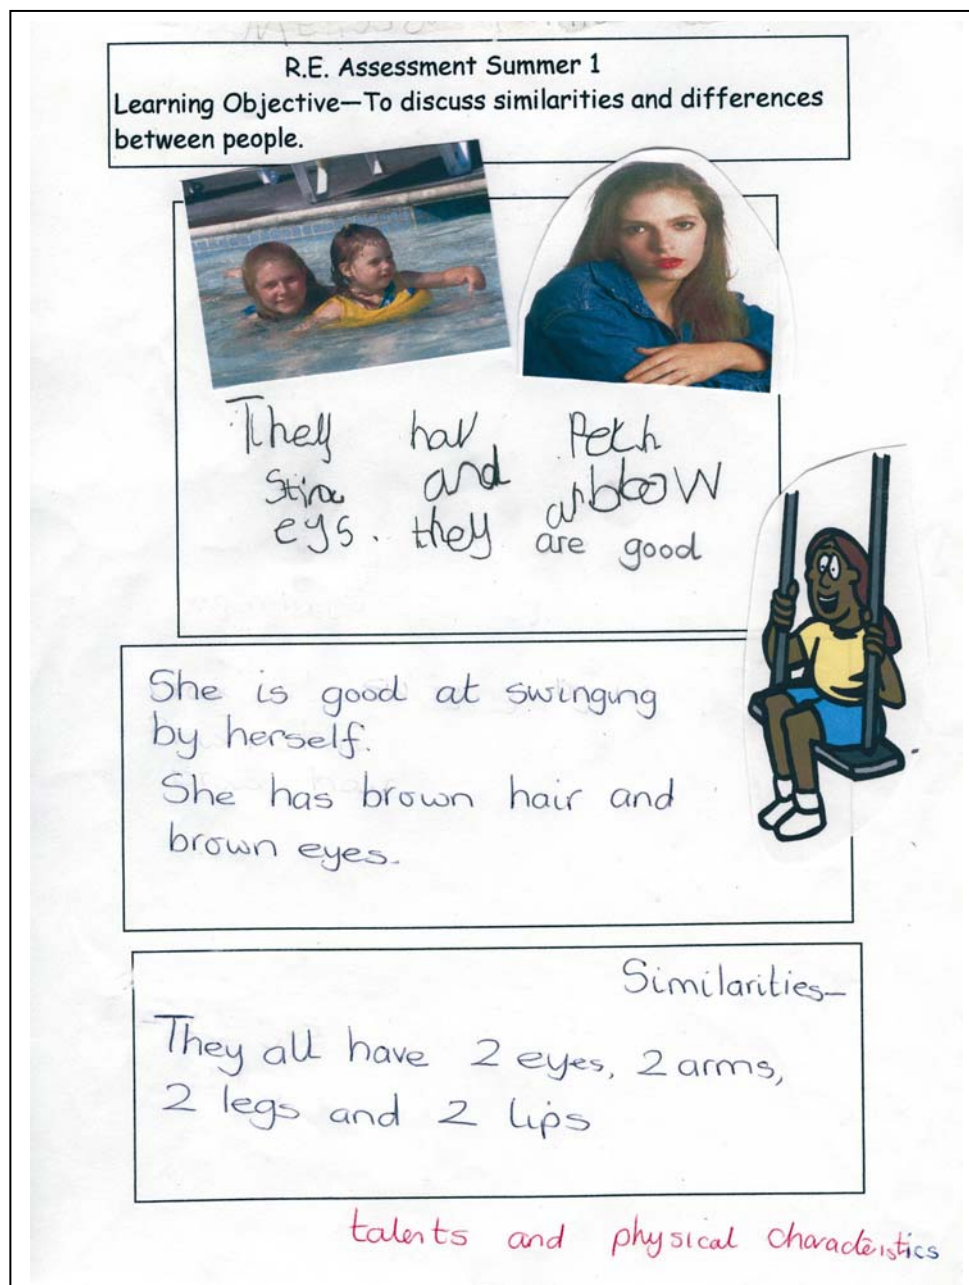 R.E. Assessment Summer 1
Learning Objective—To discuss similarities and differences
between people.
They hav Pech
and
eys. they are good
She is good at swinging
by herself.
She has brown hair and
brown eyes.
Similarities—
They all have 2 eyes, 2 arms,
2 legs and 2 lips
talents and physical characteristics